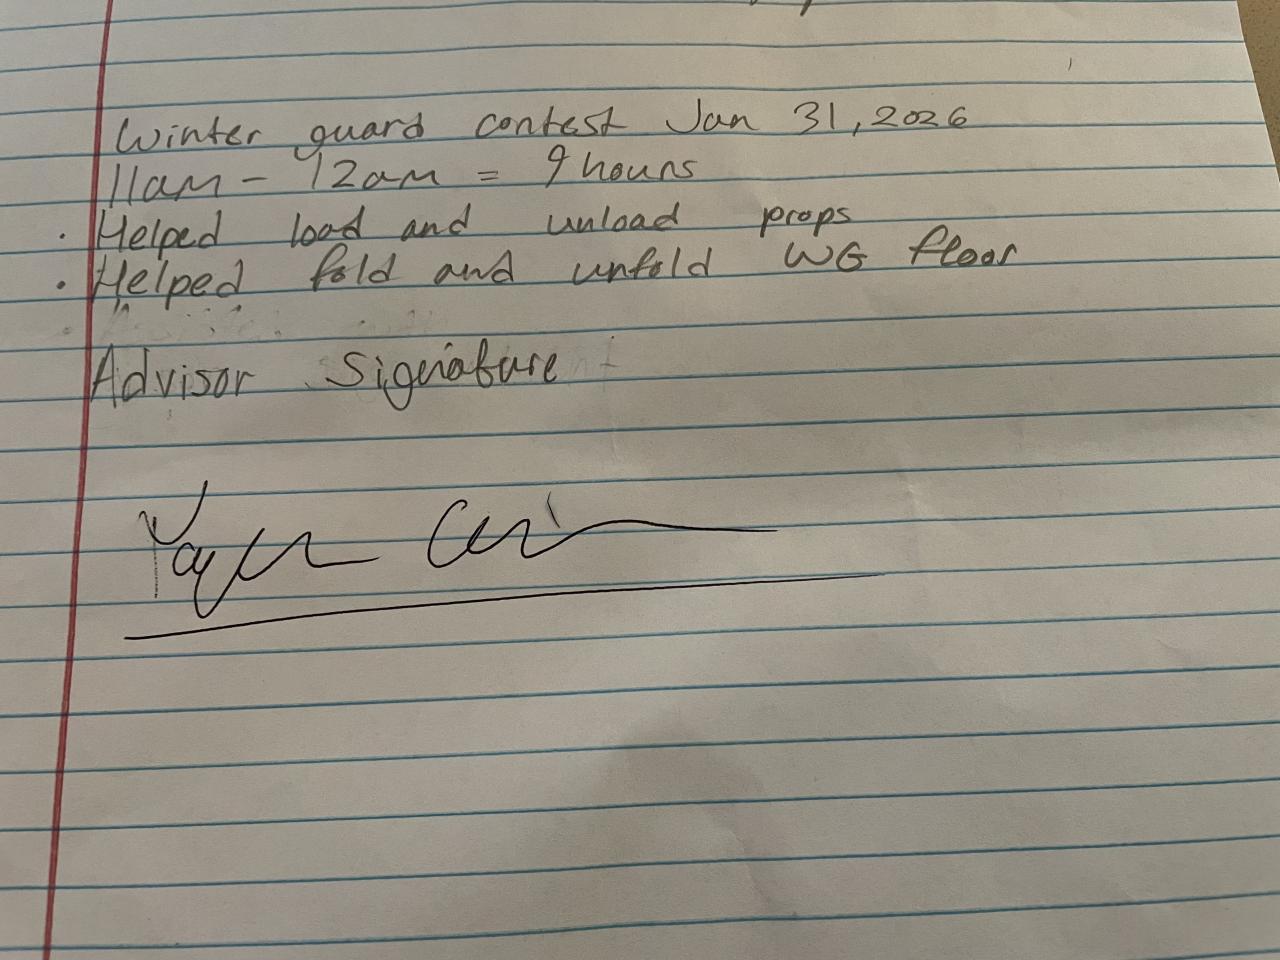 Winter guard contest Jan 31, 2026
11am - 12am = 9 hours
• Helped load and unload props
• Helped fold and unfold WG floor
Advisor Signature